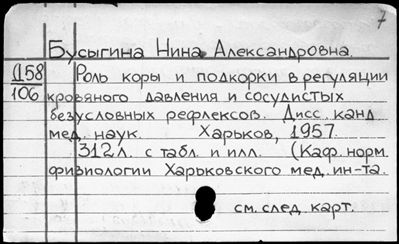 7
Бусыгина Нина Александровна.
Д58
106
Роль коры и подкорки в регуляции
кровяного давления и сосудистых
безусловных рефлексов. Дисс. канд.
мед. наук. Харьков, 1957.
312л. с табл. и илл. (Каф. норм.
физиологии Харьковского мед. ин-та.
см. след. карт.